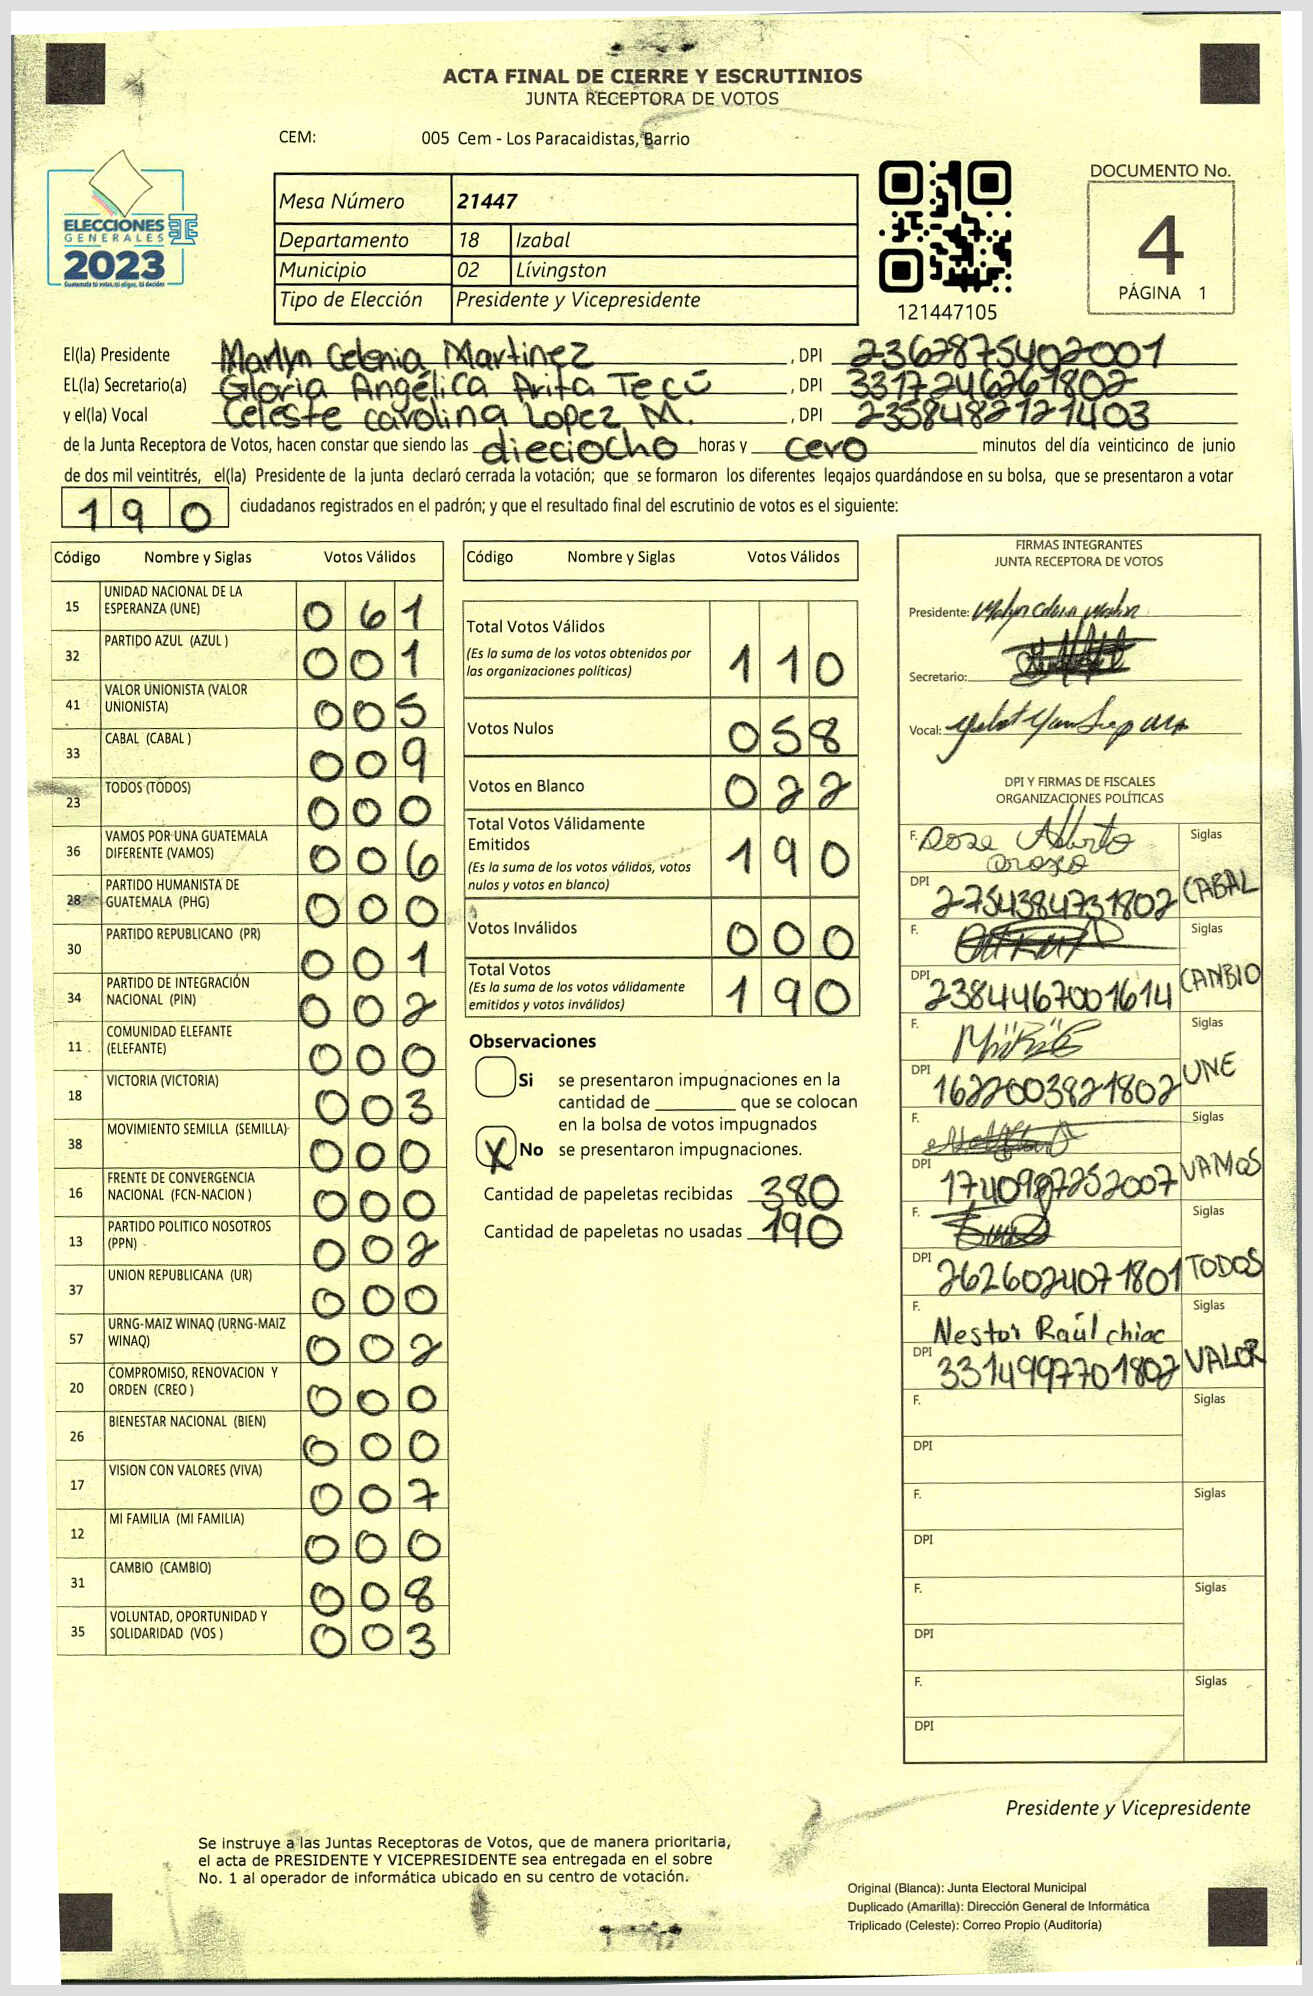 ACTA FINAL DE CIERRE Y ESCRUTINIOS
JUNTA RECEPTORA DE VOTOS
CEM: 005 Cem - Los Paracaidistas, Barrio
ELECCIONES
GENERALES
2023
Mesa Número 21447
Departamento 18 Izabal
Municipio 02 Lívingston
Tipo de Elección Presidente y Vicepresidente
121447105
DOCUMENTO No.
4
PÁGINA 1
El(la) Presidente Marlyn Celenia Martinez, DPI 2362875402001
EL(la) Secretario(a) Gloria Angélica Arita Tecú, DPI 3317246261802
y el(la) Vocal Celeste Carolina Lopez M., DPI 2358482121403
de la Junta Receptora de Votos, hacen constar que siendo las dieciocho horas y cero minutos del día veinticinco de junio
de dos mil veintitrés, el(la) Presidente de la junta declaró cerrada la votación; que se formaron los diferentes legajos guardándose en su bolsa, que se presentaron a votar
190 ciudadanos registrados en el padrón; y que el resultado final del escrutinio de votos es el siguiente:
Código Nombre y Siglas Votos Válidos
15 UNIDAD NACIONAL DE LA ESPERANZA (UNE) 061
32 PARTIDO AZUL (AZUL ) 001
41 VALOR UNIONISTA (VALOR UNIONISTA) 005
33 CABAL (CABAL ) 009
23 TODOS (TODOS) 000
36 VAMOS POR UNA GUATEMALA DIFERENTE (VAMOS) 006
28 PARTIDO HUMANISTA DE GUATEMALA (PHG) 000
30 PARTIDO REPUBLICANO (PR) 001
34 PARTIDO DE INTEGRACIÓN NACIONAL (PIN) 002
11 COMUNIDAD ELEFANTE (ELEFANTE) 000
18 VICTORIA (VICTORIA) 003
38 MOVIMIENTO SEMILLA (SEMILLA) 000
16 FRENTE DE CONVERGENCIA NACIONAL (FCN-NACION ) 000
13 PARTIDO POLITICO NOSOTROS (PPN) 002
37 UNION REPUBLICANA (UR) 000
57 URNG-MAIZ WINAQ (URNG-MAIZ WINAQ) 002
20 COMPROMISO, RENOVACION Y ORDEN (CREO ) 000
26 BIENESTAR NACIONAL (BIEN) 000
17 VISION CON VALORES (VIVA) 007
12 MI FAMILIA (MI FAMILIA) 000
31 CAMBIO (CAMBIO) 008
35 VOLUNTAD, OPORTUNIDAD Y SOLIDARIDAD (VOS ) 003
Código Nombre y Siglas Votos Válidos
Total Votos Válidos 110
(Es la suma de los votos obtenidos por
las organizaciones políticas)
Votos Nulos 058
Votos en Blanco 022
Total Votos Válidamente
Emitidos 190
(Es la suma de los votos válidos, votos
nulos y votos en blanco)
Votos Inválidos 000
Total Votos 190
(Es la suma de los votos válidamente
emitidos y votos inválidos)
Observaciones
Si se presentaron impugnaciones en la
cantidad de ________ que se colocan
en la bolsa de votos impugnados
X No se presentaron impugnaciones.
Cantidad de papeletas recibidas 380
Cantidad de papeletas no usadas 190
FIRMAS INTEGRANTES
JUNTA RECEPTORA DE VOTOS
Presidente:
Secretario:
Vocal:
DPI Y FIRMAS DE FISCALES
ORGANIZACIONES POLÍTICAS
F. Jose Alberto Orozco Siglas
DPI 2754384731802 CABAL
F. Siglas
DPI 2384467001614 CANBIO
F. Siglas
DPI 1622003821802 UNE
F. Siglas
DPI 1740987252007 VAMOS
F. Siglas
DPI 2626024071801 TODOS
F. Nestor Raúl chioc Siglas
DPI 3314999701802 VALOR
F. Siglas
DPI
F. Siglas
DPI
F. Siglas
DPI
F. Siglas
DPI
Presidente y Vicepresidente
Se instruye a las Juntas Receptoras de Votos, que de manera prioritaria,
el acta de PRESIDENTE Y VICEPRESIDENTE sea entregada en el sobre
No. 1 al operador de informática ubicado en su centro de votación.
Original (Blanca): Junta Electoral Municipal
Duplicado (Amarilla): Dirección General de Informática
Triplicado (Celeste): Correo Propio (Auditoría)